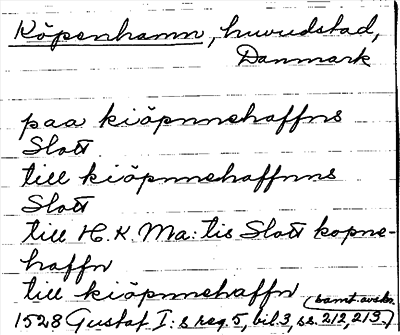 Köpenhamn, huvudstad,
Danmark
paa kiöpnnehaffns
Slott
till kiöpnnehaffnns
Slott
till H. K. Ma:tis Slott kopne-
haffn
till kiöpnnehaffn (samt. avskr.
1528 Gustaf I:s reg. 5, bil. 3, ss. 212, 213.)